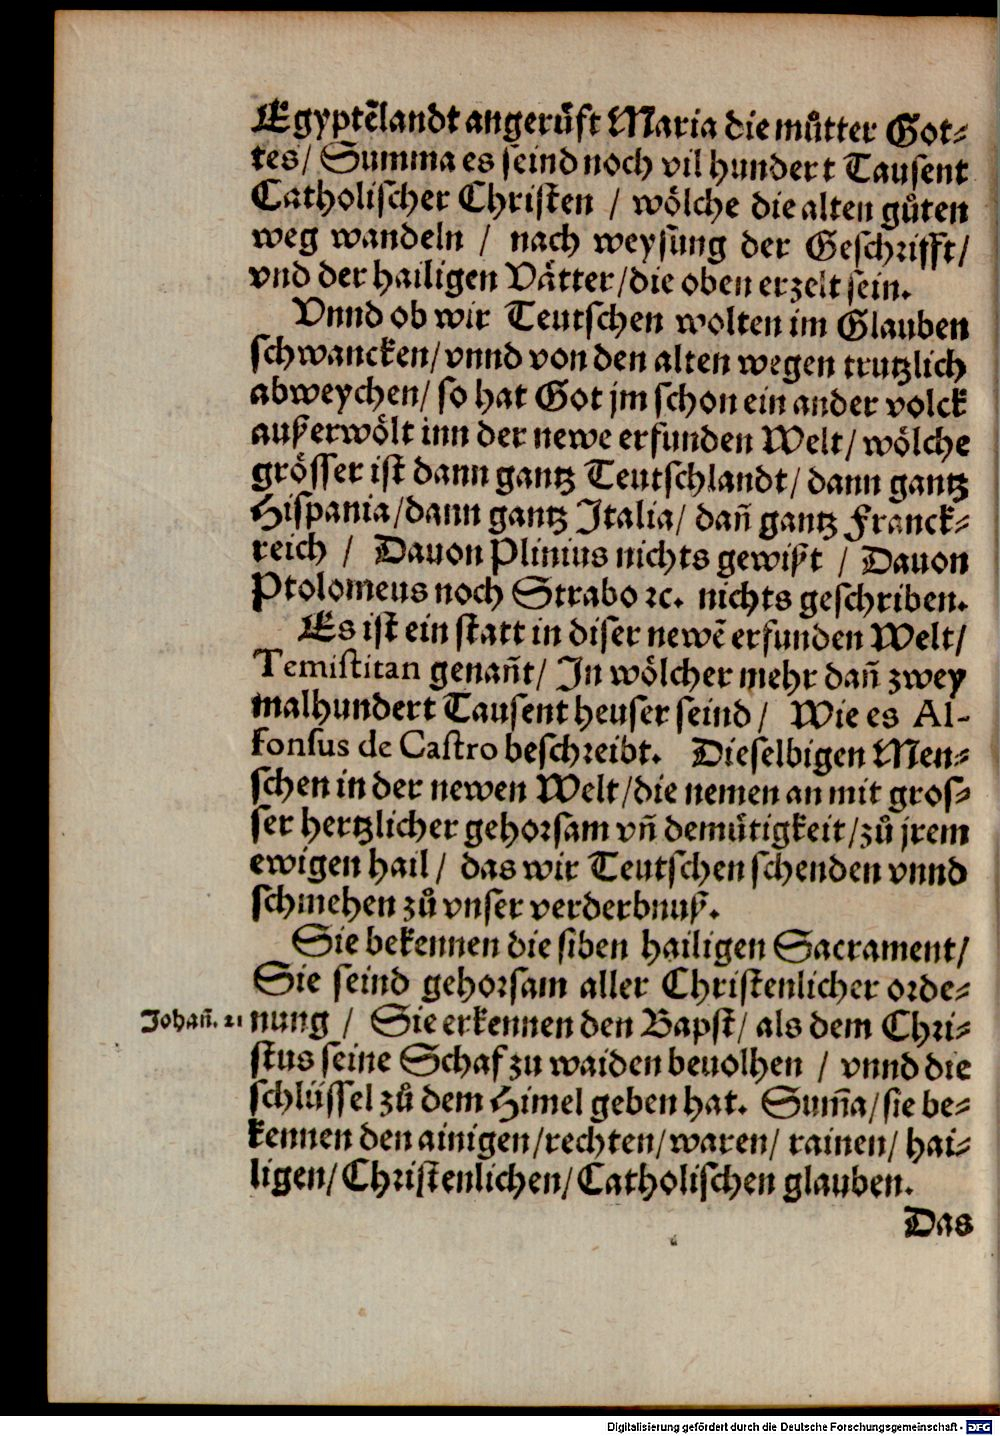 Egyptẽlandt angerůfft Maria die můtter Got⸗
tes/ Summa es seind noch vil hundert Tausent
Catholischer Christen / wölche die alten gůten
weg wandeln / nach weysung der Geschrifft/
vnd der hailigen Vätter/die oben erzelt sein.
Vnnd ob wir Teutschen wolten im Glauben
schwancken/vnnd von den alten wegen trutzlich
abweychen/ so hat Got jm schon ein ander volck
außerwölt inn der newe erfunden Welt/ wölche
grösser ist dann gantz Teutschlandt/ dann gantz
Hispania/dann gantz Italia/ dañ gantz Franck⸗
reich / Dauon Plinius nichts gewißt / Dauon
Ptolomeus noch Strabo ꝛc. nichts geschriben.
Es ist ein statt in diser newẽ erfunden Welt/
Temistitan genañt/ In wölcher mehr dañ zwey
malhundert Tausent heuser seind / Wie es Al-
fonsus de Castro beschreibt. Dieselbigen Men⸗
schen in der newen Welt/die nemen an mit gros⸗
ser hertzlicher gehorsam vñ demütigkeit/zů jrem
ewigen hail / das wir Teutschen schenden vnnd
schmehen zů vnser verderbnuß.
Sie bekennen die siben hailigen Sacrament/
Sie seind gehorsam aller Christenlicher orde⸗
Johañ. 21 nung / Sie erkennen den Bapst/ als dem Chri⸗
stus seine Schaf zu waiden beuolhen / vnnd die
schlüssel zů dem Himel geben hat. Sum̃a/sie be⸗
kennen den ainigen/rechten/waren/ rainen/ hai⸗
ligen/Christenlichen/Catholischen glauben.
Das
Digitalisierung gefördert durch die Deutsche Forschungsgemeinschaft - DFG